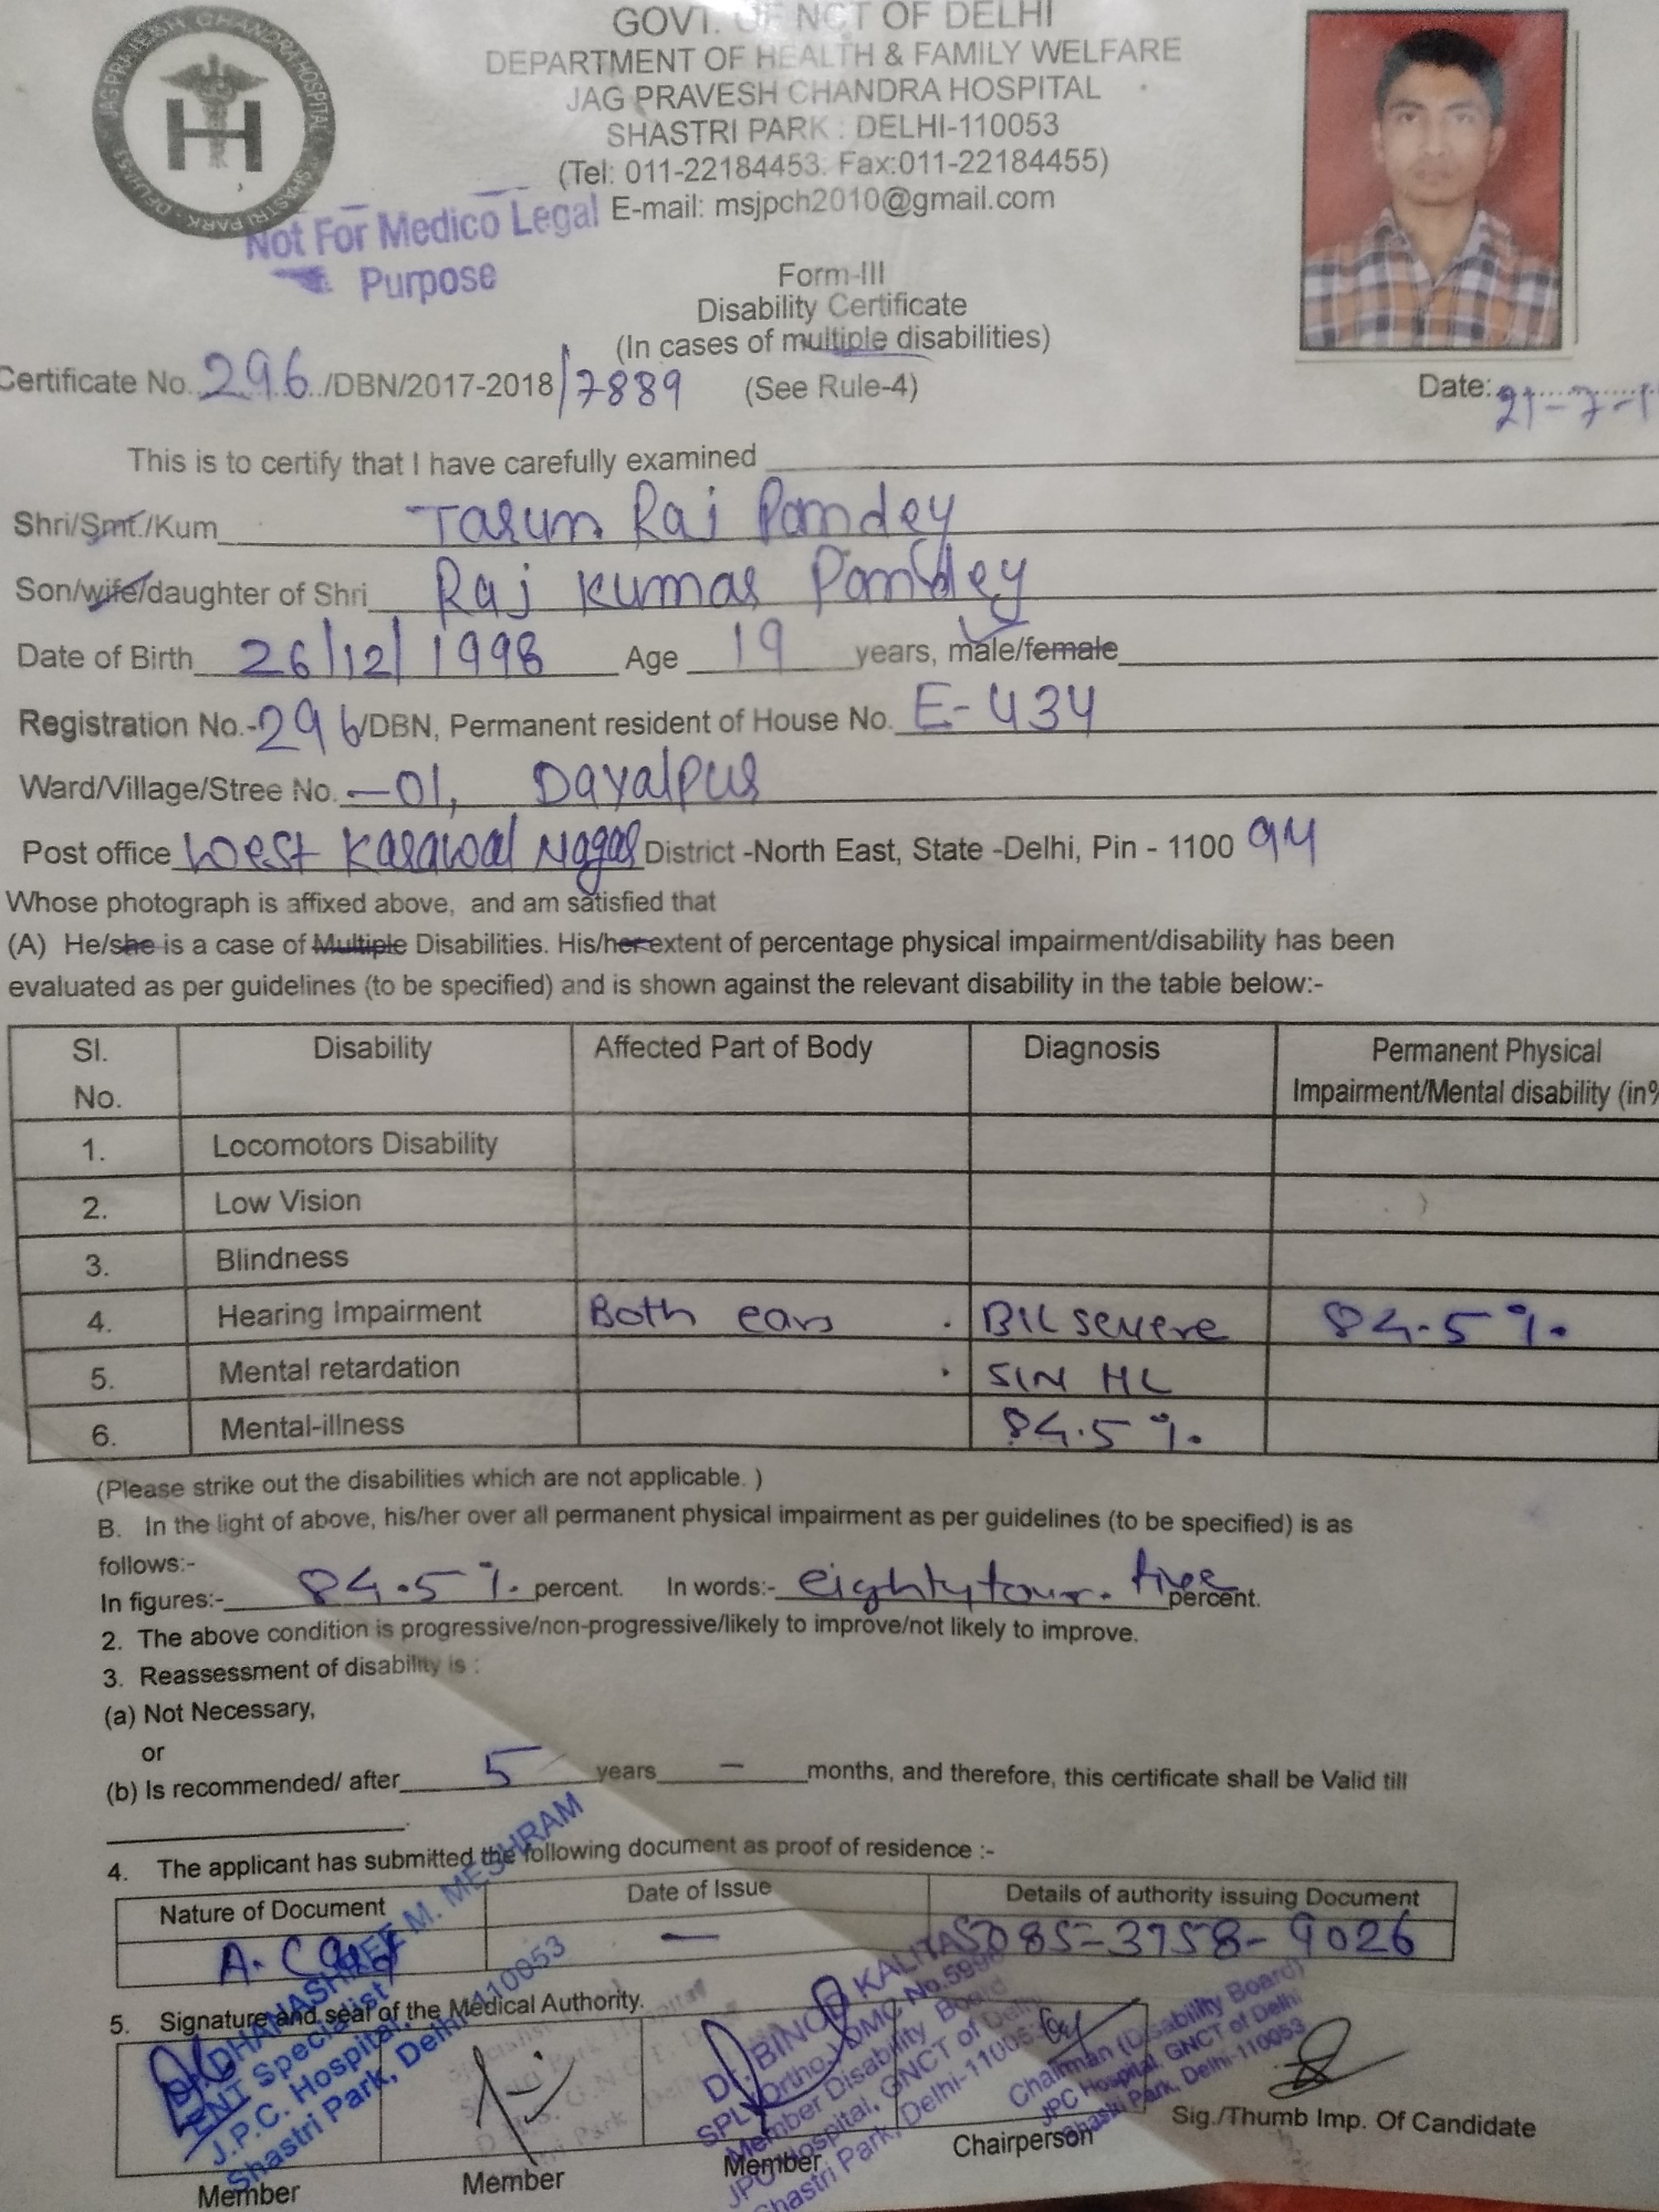 GOVT. OF NCT OF DELHI
DEPARTMENT OF HEALTH & FAMILY WELFARE
JAG PRAVESH CHANDRA HOSPITAL
SHASTRI PARK : DELHI-110053
(Tel: 011-22184453. Fax:011-22184455)
E-mail: msjpch2010@gmail.com
JAG PRAVESH CHANDRA HOSPITAL
SHASTRI PARK - DELHI-53
H
Not For Medico Legal
Purpose
Form-III
Disability Certificate
(In cases of multiple disabilities)
Certificate No. 296 /DBN/2017-2018/7889 (See Rule-4) Date: 21-7-1
This is to certify that I have carefully examined
Shri/Smt./Kum Tarun Raj Pandey
Son/wife/daughter of Shri Raj Kumar Pandey
Date of Birth 26/12/1998 Age 19 years, male/female
Registration No.-296/DBN, Permanent resident of House No. E-434
Ward/Village/Stree No. -01, Dayalpur
Post office West Karawal Nagar District -North East, State -Delhi, Pin - 1100 94
Whose photograph is affixed above, and am satisfied that
(A) He/she is a case of Multiple Disabilities. His/her extent of percentage physical impairment/disability has been
evaluated as per guidelines (to be specified) and is shown against the relevant disability in the table below:-
Sl. No. Disability Affected Part of Body Diagnosis Permanent Physical Impairment/Mental disability (in%
1. Locomotors Disability
2. Low Vision
3. Blindness
4. Hearing Impairment Both ears BIL severe 84.5 %
5. Mental retardation SIN HL
6. Mental-illness 84.5 %
(Please strike out the disabilities which are not applicable. )
B. In the light of above, his/her over all permanent physical impairment as per guidelines (to be specified) is as
follows:-
In figures:- 84.5 % percent. In words:- eighty four. five percent.
2. The above condition is progressive/non-progressive/likely to improve/not likely to improve.
3. Reassessment of disability is :
(a) Not Necessary,
or
(b) Is recommended/ after 5 years - months, and therefore, this certificate shall be Valid till
4. The applicant has submitted the following document as proof of residence :-
Nature of Document Date of Issue Details of authority issuing Document
A. Card - 5085-3758-9026
5. Signature and seal of the Medical Authority.
Dr. DHANASHREE M. MESHRAM
ENT Specialist
J.P.C. Hospital,
Shastri Park, Delhi-110053
Dr. BINOD KALITA
SPL (Ortho.) DMC No.
Member Disability Board
JPC Hospital, GNCT of Delhi
Shastri Park, Delhi-110053
Chairman (Disability Board)
JPC Hospital, GNCT of Delhi
Shastri Park, Delhi-110053
Member Member Member Chairperson Sig./Thumb Imp. Of Candidate